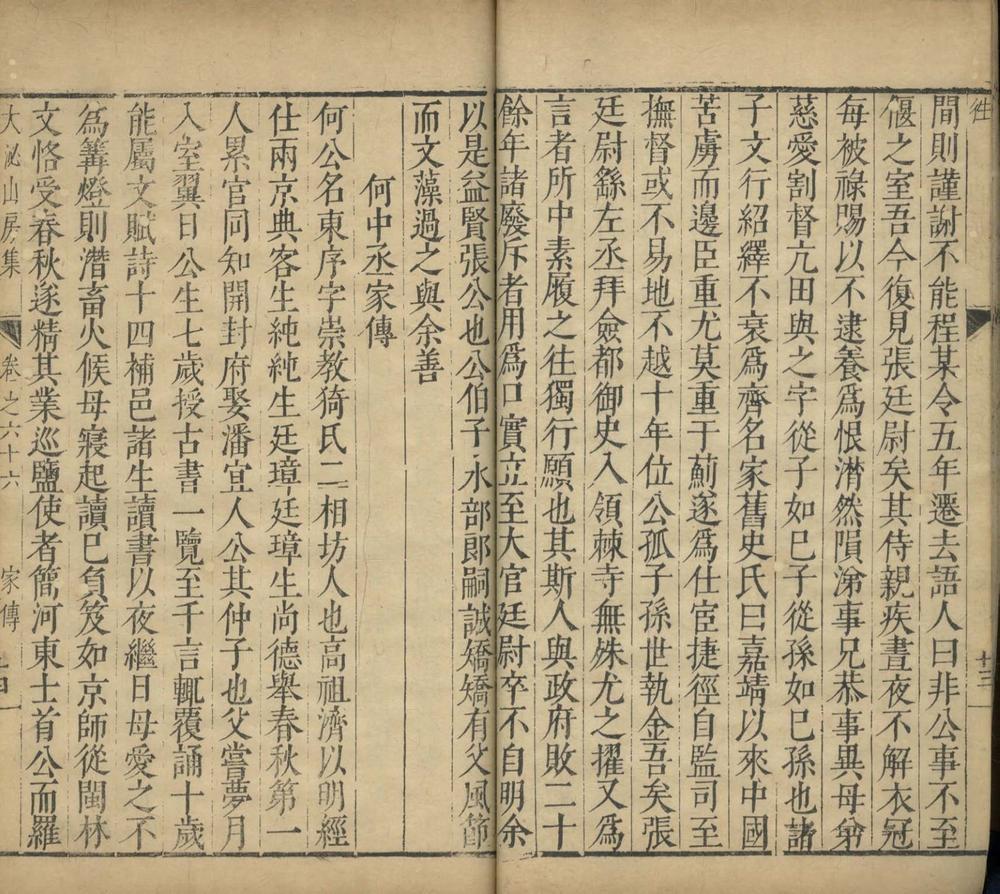 間則謹謝不能程某令五年遷去語人曰非公事不至
偃之室吾今復見張廷尉矣其侍親疾晝夜不解衣冠
每被祿賜以不逮養爲恨潸然隕涕事兄恭事異母弟
慈愛割督亢田與之字從子如已子從孫如已孫也諸
子文行紹繹不衰爲齊名家舊史氏曰嘉靖以來中國
苦虜而邊臣重尤莫重于薊遂爲仕宦捷徑自監司至
撫督或不易地不越十年位公孤子孫世執金吾矣張
廷尉繇左丞拜僉都御史入領棘寺無殊尤之擢又爲
言者所中素履之往獨行願也其斯人與政府敗二十
餘年諸廢斥者用爲口實立至大官廷尉卒不自明余
以是益賢張公也公伯子水部郎嗣誠矯矯有父風節
而文藻過之與余善
何中丞家傳
何公名東序字崇教猗氏二相坊人也高祖濟以明經
仕兩京典客生純純生廷璋廷璋生尚德舉春秋第一
人累官同知開封府娶潘宜人公其仲子也父嘗夢月
入室翼日公生七歲授古書一覽至千言輒覆誦十歲
能屬文賦詩十四補邑諸生讀書以夜繼日母愛之不
爲篝燈則潛畜火候母寢起讀巳負笈如京師從閩林
文恪受春秋遂精其業巡鹽使者簡河東士首公而羅
大泌山房集 卷之六十六 家傳